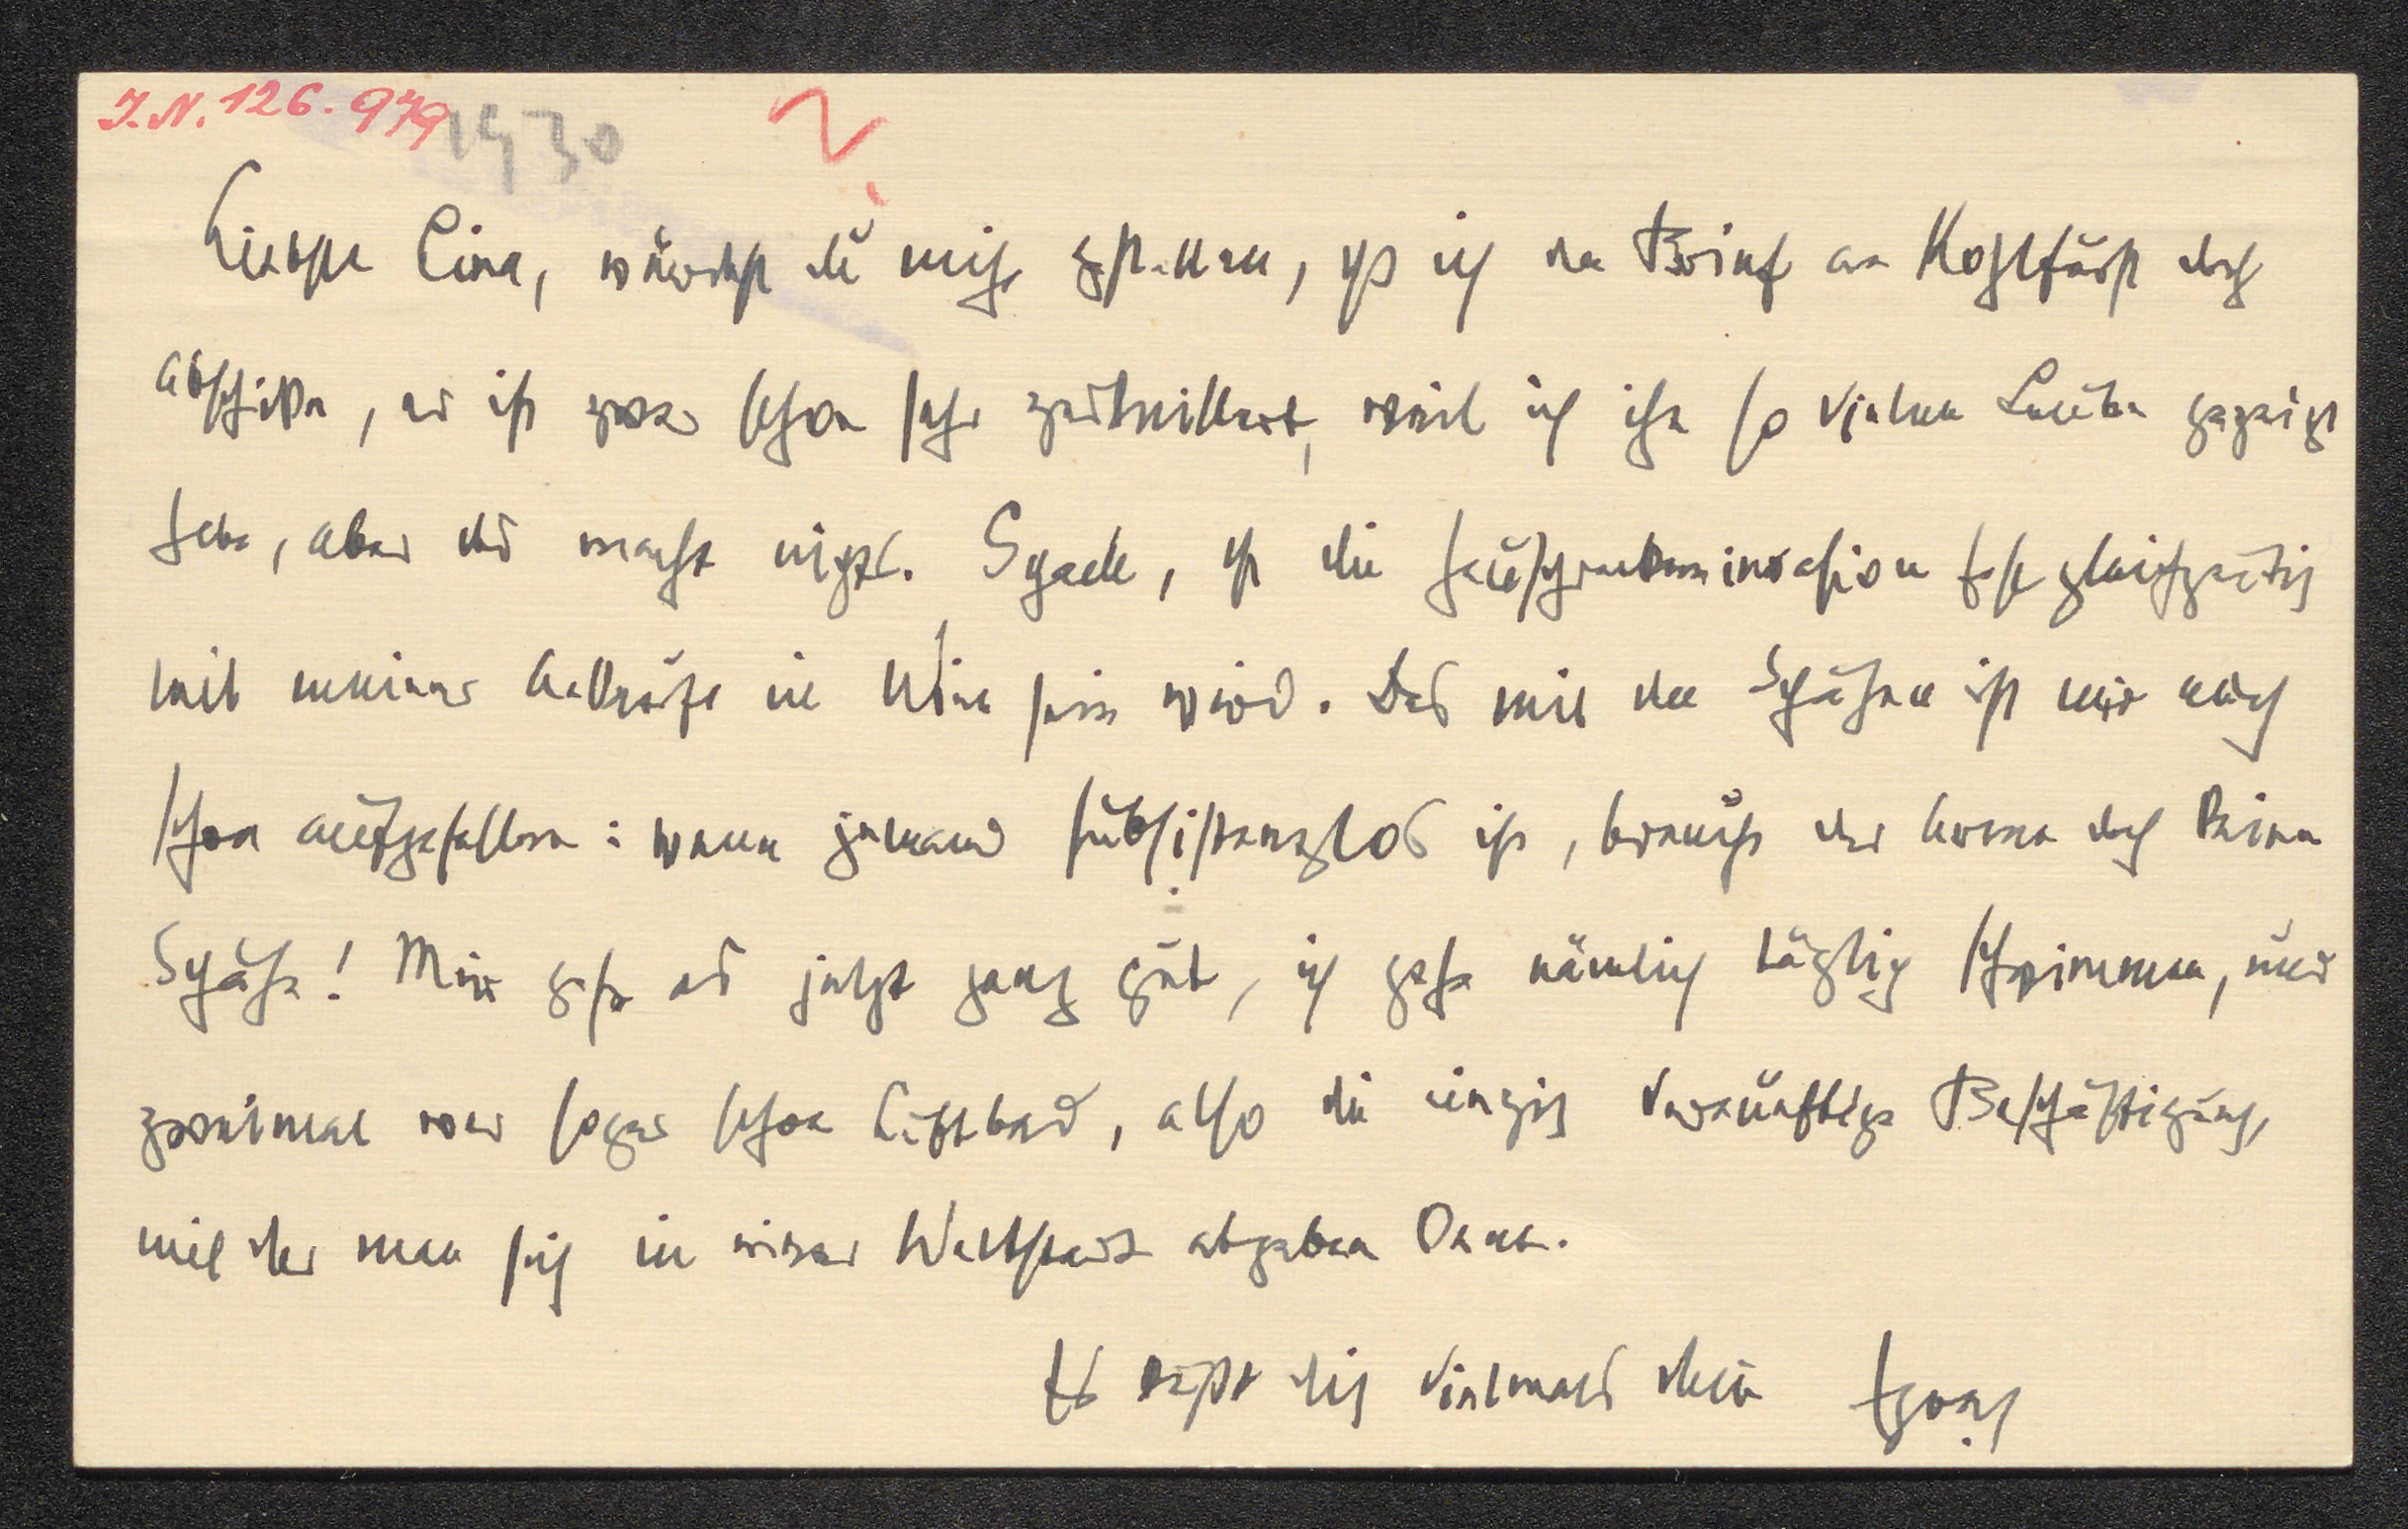 I.N. 126.979
1930
Liebste Lina, würdest du mich , daß ich den Brief an Kohlfürst doch
abschicke, er ist zwar schon sehr zerknittert, weil ich ihn so vielen Leuten gezeigt
habe, aber das macht nichts. Schade, daß die invasion fast gleichzeitig
mit meiner Ankunft in Wien sein wird. Das mit den Schuhen ist mir auch
schon aufgefallen: wenn jemand subsistenzlos ist, braucht der Arme doch keine
Schuhe! Mir geht es jetzt ganz gut, ich gehe nämlich täglich schwimmen, und
zweimal war sogar schon Luftbad, also die einzig vernünftige Beschäftigung,
mit der man sich in einer Weltstadt abgeben kann.
Es küßt dich vielmals dein